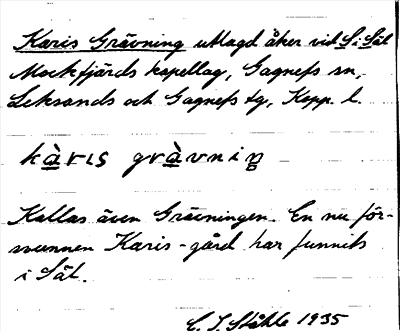 Karis Grävning utlagd åker vid S. i Sål
Mockfjärds kapellag, Gagnefs sn,
Leksands och Gagnefs tg, Kopp. l.
kàrıs gràvnıŋ
Kallas även Grävningen. En nu för-
svunnen Karis-gård har funnits
i Sål.
E. I. Ståhle 1935